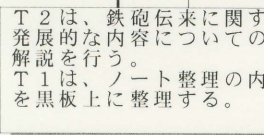 T2は、鉄砲伝来に関す
発展的な内容についての
解説を行う。
T1は、ノート整理の内
を黒板上に整理する。